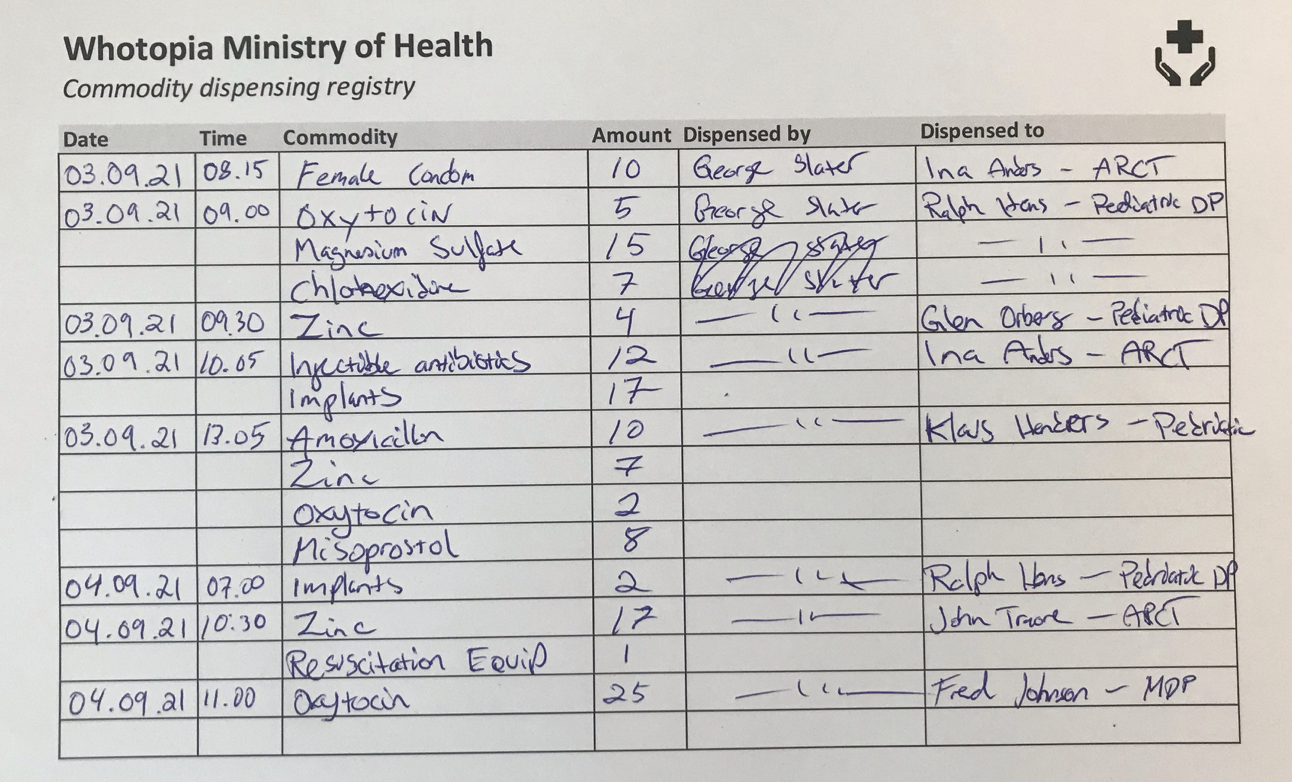 Whotopia Ministry of Health
Commodity dispensing registry
Date Time Commodity Amount Dispensed by Dispensed to
03.09.21 08.15 Female Condom 10 George Slater Ina Anders - ARCT
03.09.21 09.00 Oxytocin 5 George Slater Ralph Hans - Pediatric DP
Magnesium Sulfate 15 George Slater — ıı —
Chlohexidine 7 George Slater — ıı —
03.09.21 09.30 Zinc 4 — ıı — Glen Orbers - Pediatric DP
03.09.21 10.05 Injectible antibiotics 12 — ıı — Ina Anders - ARCT
Implants 17
03.09.21 13.05 Amoxicillin 10 — ıı — Klaus Henders - Pedriatic
Zinc 7
Oxytocin 2
Misoprostol 8
04.09.21 07.00 Implants 2 — ıı — Ralph Hans - Pedriatic DP
04.09.21 10:30 Zinc 17 — ıı — John Traore - ARCT
Resuscitation Equip 1
04.09.21 11.00 Oxytocin 25 — ıı — Fred Johnson - MDP